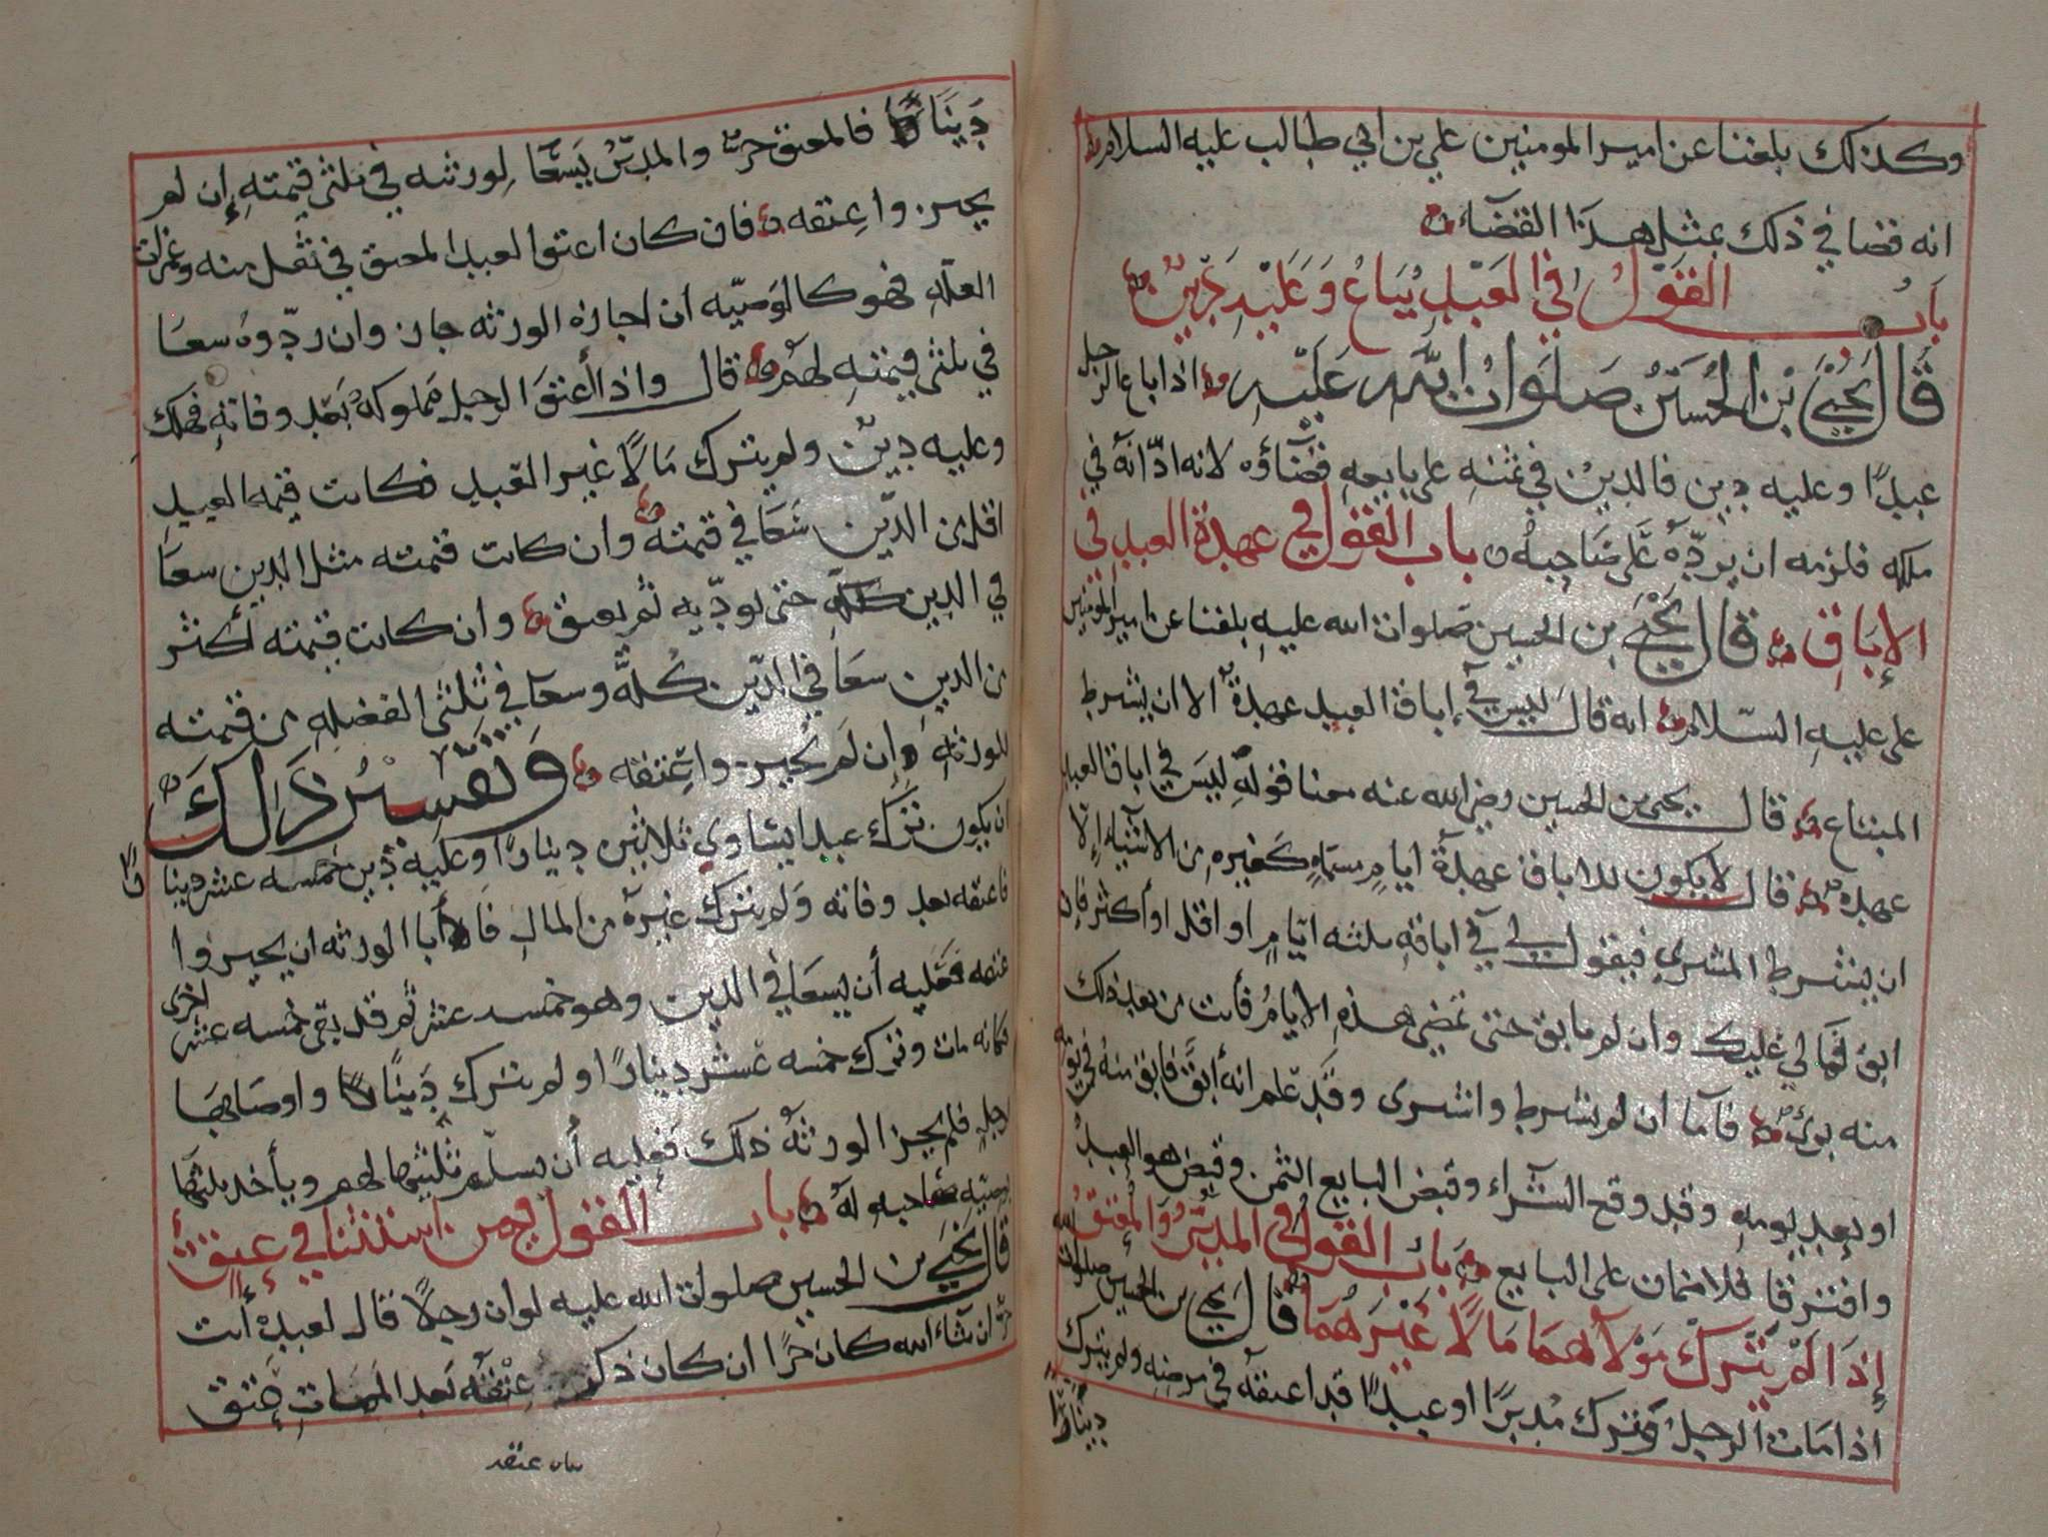 وكذلك بلغنا عن امير المومنين علي بن ابي طالب عليه السلام
انه قضا في ذلك بمثل هذا القضاء
باب القول في العبد يباع وعليه دين
قال يحيى بن الحسين صلوات الله عليه اذا باع الرجل
عبدًا وعليه دين فالدين في ثمنه على بايعه قضاؤه لانه ادّانه في
ملكه فلزمه ان يردّه على صاحبه باب القول في عهدة العبد في
الإباق قال يحيى بن الحسين صلوات الله عليه بلغنا عن امير المومنين
على عليه السّلام انه قال ليس في إباق العبد عهدة الا ان يشرط
المبتاع قال يحيى بن الحسين رضي الله عنه معنا قوله ليس في اباق العبد
عهدة قال لا يكون للاباق عهدة ايام مسماه كغيره من الاشياء إلا
ان يشرط المشري فيقول لي في اباقه ثلثه ايّام او اقل او أكثر فإن
ابق فمالي عليك وان لم يابق حتى تمضي هذه الايام فأنت من بعد ذلك
منه برئ فاما ان لم يشرط واشرى وقد علم انه أبق فابق منه في يومه
او بعد يومه وقد وقع الشراء وقبض البايع الثمن وقبض هو العبد
وافترقا فلا ضمان على البايع باب القول في المدبّر والمعتق
إذا لم يترك مولاهما مالا غيرهما قال يحيى بن الحسين صلوات الله
اذا مات الرجل وترك مدبرًا او عبدًا قد اعتقه في مرضه ولم يترك
دينارًا
دينارًا فالمعتق حر والمدبّر يسعا لورثه في ثلثي قيمته إن لم
يجيزوا عتقه فان كان اعتق العبد المعتق في ثقل منه وغمرات
العلّه فهو كالوصيّه ان اجازه الورثه جاز وان ردّوه سعا
في ثلثي قيمته لهم قال واذا أعتق الرجل مملوكه بعد وفاته فهلك
وعليه دين ولم يترك مالًا غير العبد فكانت قيمة العبد
اقل من الدّين سعا في قيمته وان كانت قيمته مثل الدين سعا
في الدين كله حتى يودّيه ثم يعتق وان كانت قيمته أكثر
من الدين سعا في الدّين كلّه وسعا في ثلثى الفضله من قيمته
للورثه وإن لم يجيزوا عتقه وتفسير ذلك
ان يكون ترك عبدا يساوي ثلاثين دينارًا وعليه دين خمسه عشر دينارًا
فاعتقه بعد وفاته ولم يترك غيره من المال فأبا الورثه ان يجيزوا
عتقه فعليه أن يسعا في الدين وهو خمسه عشر ثم قد بقي خمسه عشر اخرى
فكانه مات وترك خمسه عشر دينارًا ولم يترك دينًا واوصا بها
رجل فلم يجز الورثه ذلك فعليه أن يسلّم ثلثيها لهم ويأخذ ثلثها
بوصيّه صاحبه له باب القول فيمن استثنا في عتق
قال يحيى بن الحسين صلوات الله عليه لو ان رجلًا قال لعبده أنت
حرّ ان شاء الله كان حرًا ان كان ذكر عتقه بعد الممات عتق